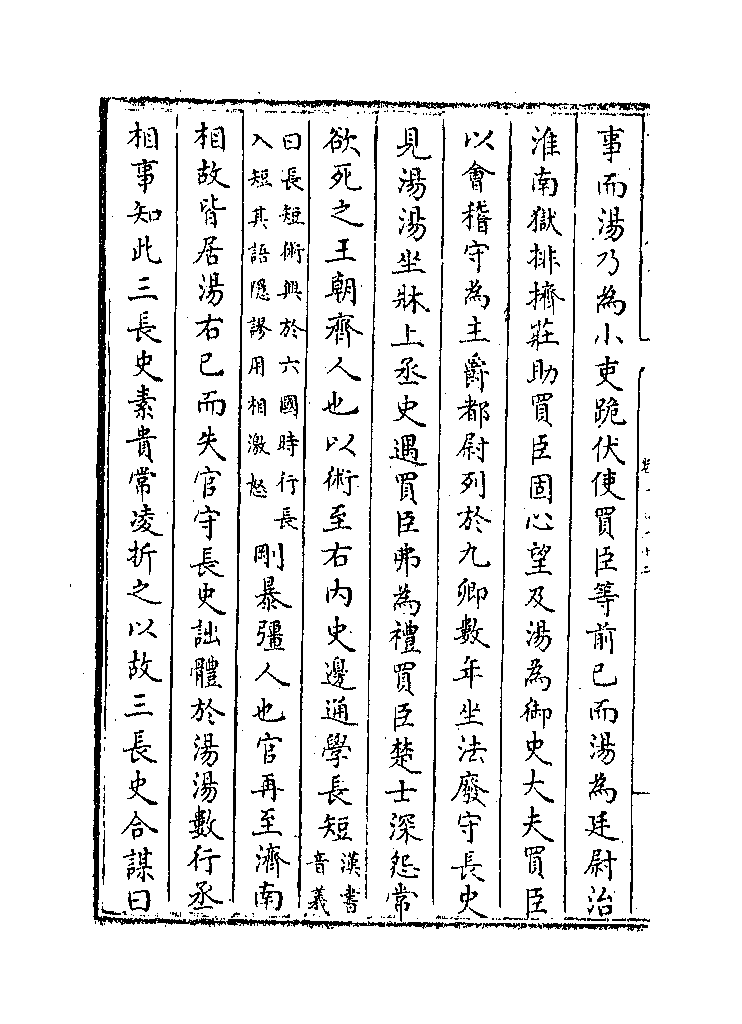 事而湯乃為小吏跪伏使買臣等前已而湯為廷尉治
淮南獄排擠莊助買臣固心望及湯為御史大夫買臣
以會稽守為主爵都尉列於九卿數年坐法廢守長史
見湯湯坐牀上丞史遇買臣弗為禮買臣楚士深怨常
欲死之王朝齊人也以術至右内史邊通學長短漢書音義
曰長短術興於六國時行長入短其語隱謬用相激怒剛暴彊人也官再至濟南
相故皆居湯右已而失官守長史詘體於湯湯數行丞
相事知此三長史素貴常凌折之以故三長史合謀曰